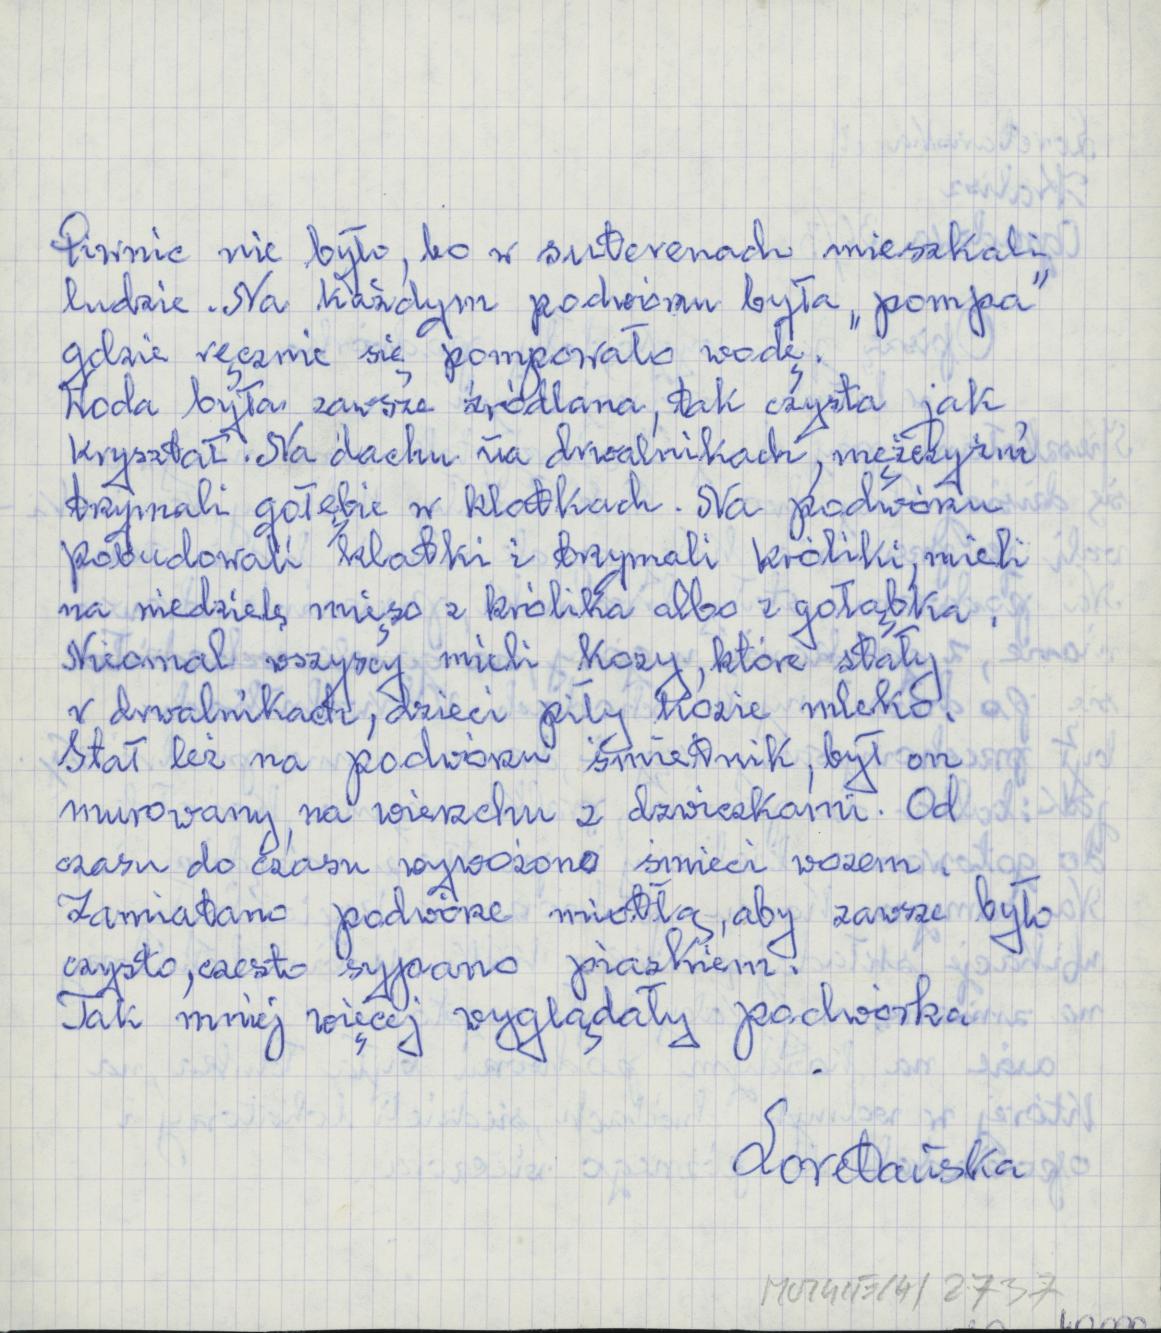 Piwnic nie było, bo w suterenach mieszkali
ludzie. Na każdym podwórzu była „pompa”
gdzie ręcznie się pompowało wodę.
Woda była zawsze źródlana, tak czysta jak
kryształ. Na dachu na drwalnikach, mężczyźni
trzymali gołębie w klatkach. Na podwórzu
pobudowali klatki i trzymali króliki, mieli
na niedzielę mięso z królika albo z gołąbka.
Nieomal wszyscy mieli kozy, które stały
w drwalnikach, dzieci piły kozie mleko.
Stał też na podwórzu śmietnik, był on
murowany, na wierzchu z dzwiczkami. Od
czasu do czasu wywożono śmieci wozem.
Zamiatano podwórze miotłą, aby zawsze było
czysto, czesto sypano piaskiem.
Tak mniej więcej wyglądały podwórka
.
Loretańska
2737